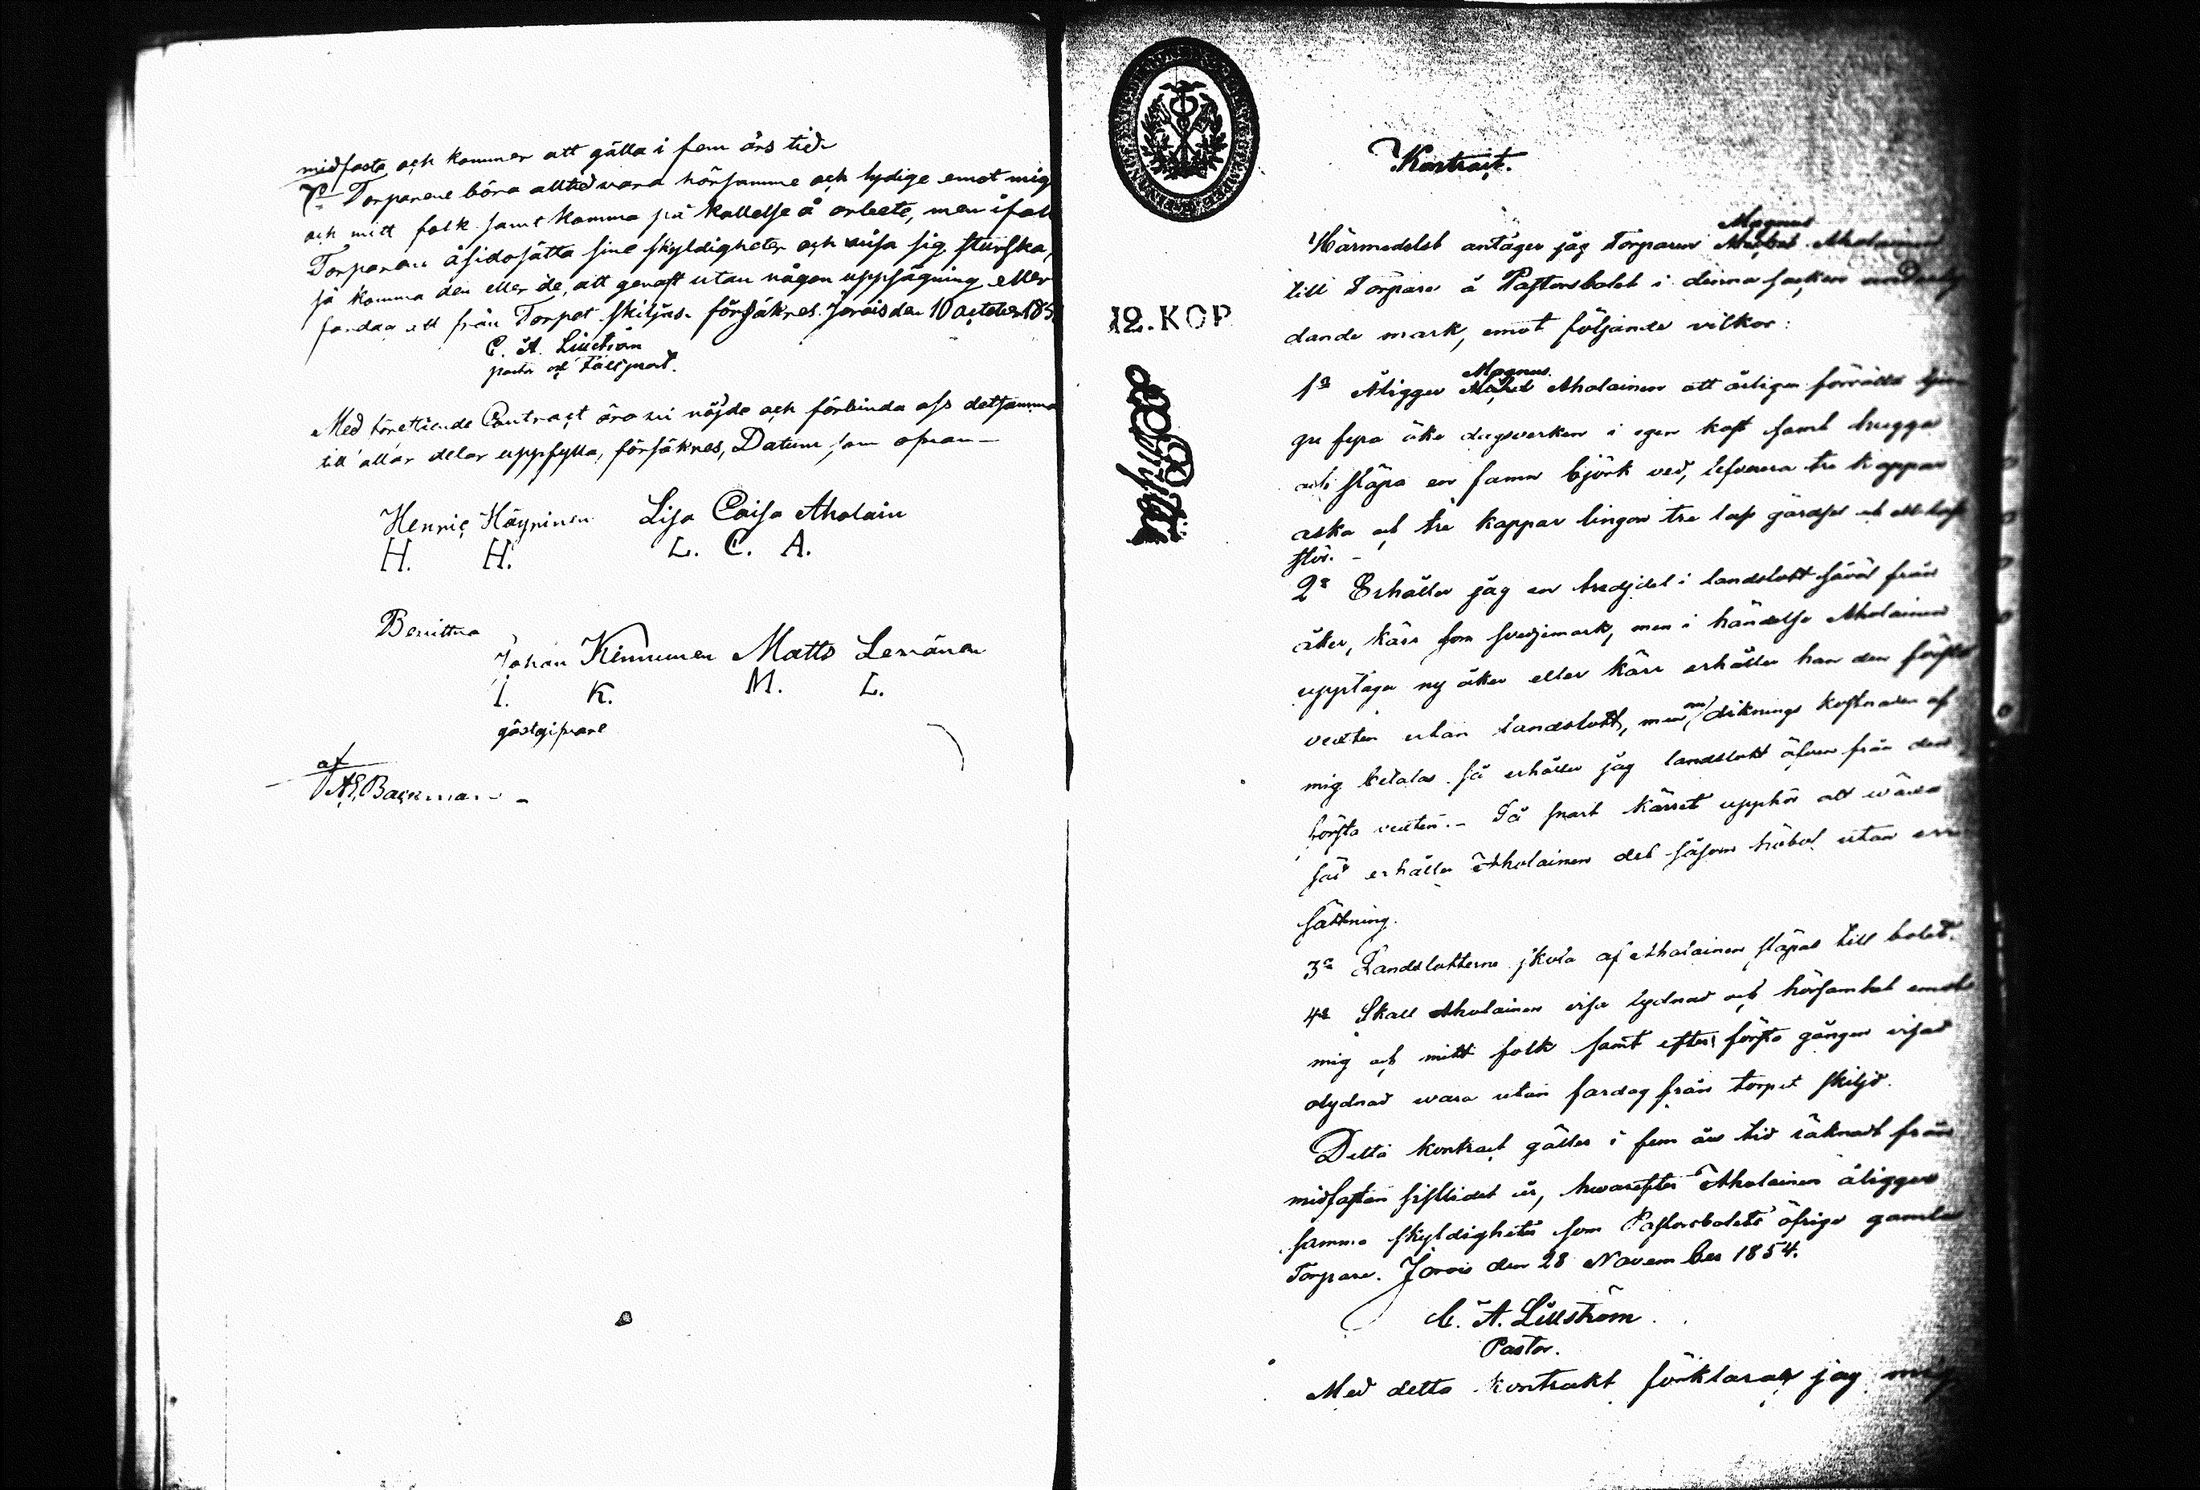 midfasta och kommer att gälla i fem års tid.
7º Torparene böra alltid vara hörsamme och lydige emot mig
och mitt folk samt komma på kallelse å arbete, men ifall
Torparen åsidosätta sine skyldigheter och visa sig sturska,
så komma den eller de, att genast utan någon uppsägning eller
fardag ett från Torpet skiljas. försäkres. Jorois den 10 october 185
C. A. Lillström
pastor
Med förestående Contract äro vi nöjde och förbinda oss detsamma
till allar delar uppfylla, försäkres, Datum som ofvan —
Hennric Häyrinen Lisa Caisa Aholain
H. H. L. C. A.
Bevittna
Johan Kinnunen Matts Levänen
I. K. M. L.
gästgifvare
af
A.E. Backman
Kontract.
Magnus
Härmedelst antager jag Torparen Aholainen
till Torpare å Pastorsbolet i denna socken
dande mark, emot följande vilkor:
Magnus
1º Åligger Aholainen att årligen förrätta
gu fyra öke dagsverken i egen kost samt hugga
och släpa en famn björk ved, lefverera tre kappar
aska och tre kappar lingon tre lass gärdsel och ett lass
stör. –
2º Erhåller jag en tredjdel i landslott såväl från
åker, kärr som svedjemark, men i händelse Aholainen
upptager ny åker eller kärr erhåller han den första
växten utan landslott, men om diknings kostnaden af
mig betalas så erhåller jag landslott äfven från den
första växten. – Så snart kärret upphör att wäxa
säd erhåller Aholainen det såsom höbol utan
sättning.
3º Landslotterne skola af Aholainen släpas till bolet.
4º Skall Aholainen visa lydnad och hörsamhet emot
mig och mitt folk samt efter första gången visad
olydnad wara utan fardag från torpet skiljd.
Detta kontract gäller i fem års tid räknadt från
midfastan sistlidet år, hwarefter Aholainen åligger
samma skyldigheter som Pastorsbolets öfrige gamla
Torpare. Jorois den 28 November 1854.
C. A. Lillström
Pastor.
Med detta kontrakt förklarar jag mig
12. KOP